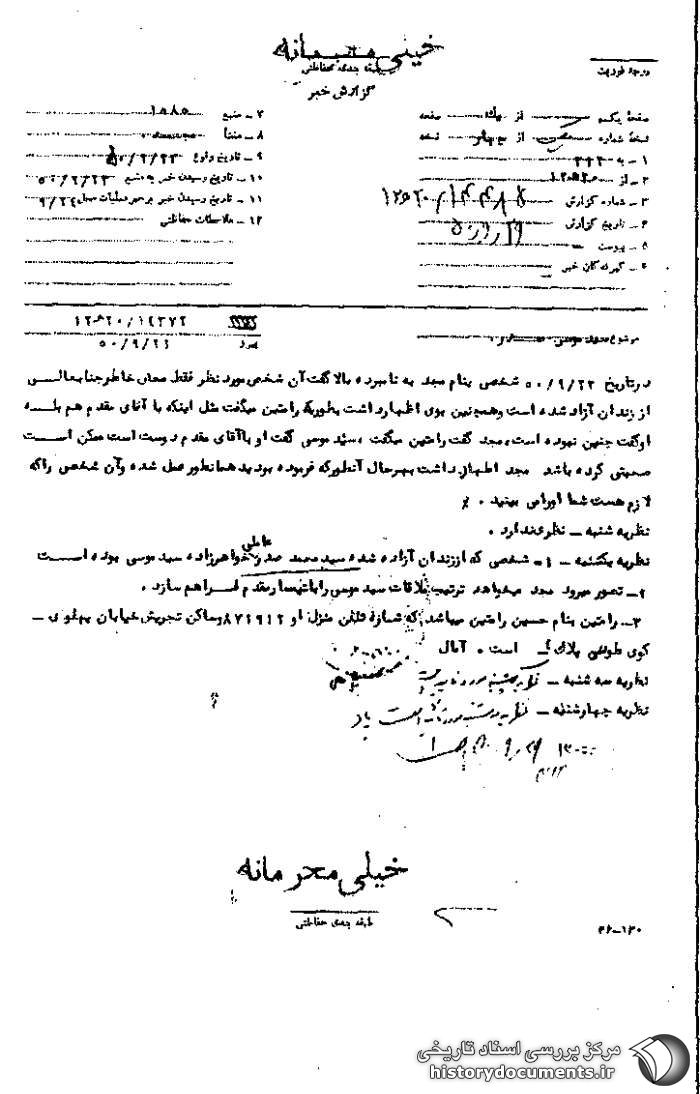 خیلی محرمانه
طبقه بندی حفاظتی
درجه فوریت
گزارش خبر
صفحه یکم از یک صفحه
نسخه شماره از چهار نسخه
۱ـ به ۳۴۲
۲ـ از ۱۲۵۲۰
۳ـ شماره گزارش
۴ـ تاریخ گزارش
۵ـ پیوست
۶ـ گیرندگان خبر
۷ـ منبع ۱۵۸۵
۸ـ منشأ
۹ـ تاریخ وقوع ۵۰/۹/۲۳
۱۰ـ تاریخ رسیدن خبر به منبع ۵۰/۹/۲۳
۱۱ـ تاریخ رسیدن خبر برهبر عملیات محل ۹/۲۴
۱۲ـ ملاحظات حفاظتی
موضوع سید موسی صدر
۱۲۵۲۰/۱۴۳۷۲
۵۰/۹/۲۱
درتاریخ ۵۰/۹/۲۳ شخصی بنام مجد به نامبرده بالا گفت آن شخص مورد نظر فقط محض خاطر جنابعالی
از زندان آزاد شده است و همچنین بوی اظهار داشت بطوریکه رامتین میگفت مثل اینکه با آقای مقدم هم بله
او گفت چنین نبوده است، مجد گفت رامتین میگفت ، سید موسی گفت او با آقای مقدم دوست است ممکن است
صحبتی کرده باشد مجد اظهار داشت بهرحال آنطور که فرموده بودید همانطور عمل شده و آن شخصی را که
لازم هست شما او را می بینید .
نظریه شنبه ـ نظری ندارد .
نظریه یکشنبه ـ ۱ـ شخصی که از زندان آزاده شده سید محمد صدر عاملی خواهرزاده سید موسی بوده است
۲ـ تصور میرود مجد میخواهد ترتیب ملاقات سید موسی را با تیمسار مقدم فراهم سازد .
۳ـ رامتین بنام حسین رامتین میباشد که شماره تلفن منزل او ۸۷۲۹۱۲ و ساکن تجریش خیابان پهلوی ـ
کوی طوسی پلاک است . آمال
نظریه سه شنبه ـ نظریه یکشنبه مورد تایید است
نظریه چهارشنبه ـ نظریه سه شنبه مورد تایید است
خیلی محرمانه
طبقه بندی حفاظتی
۳۶-۱۳۰
مرکز بررسی اسناد تاریخی
historydocuments.ir